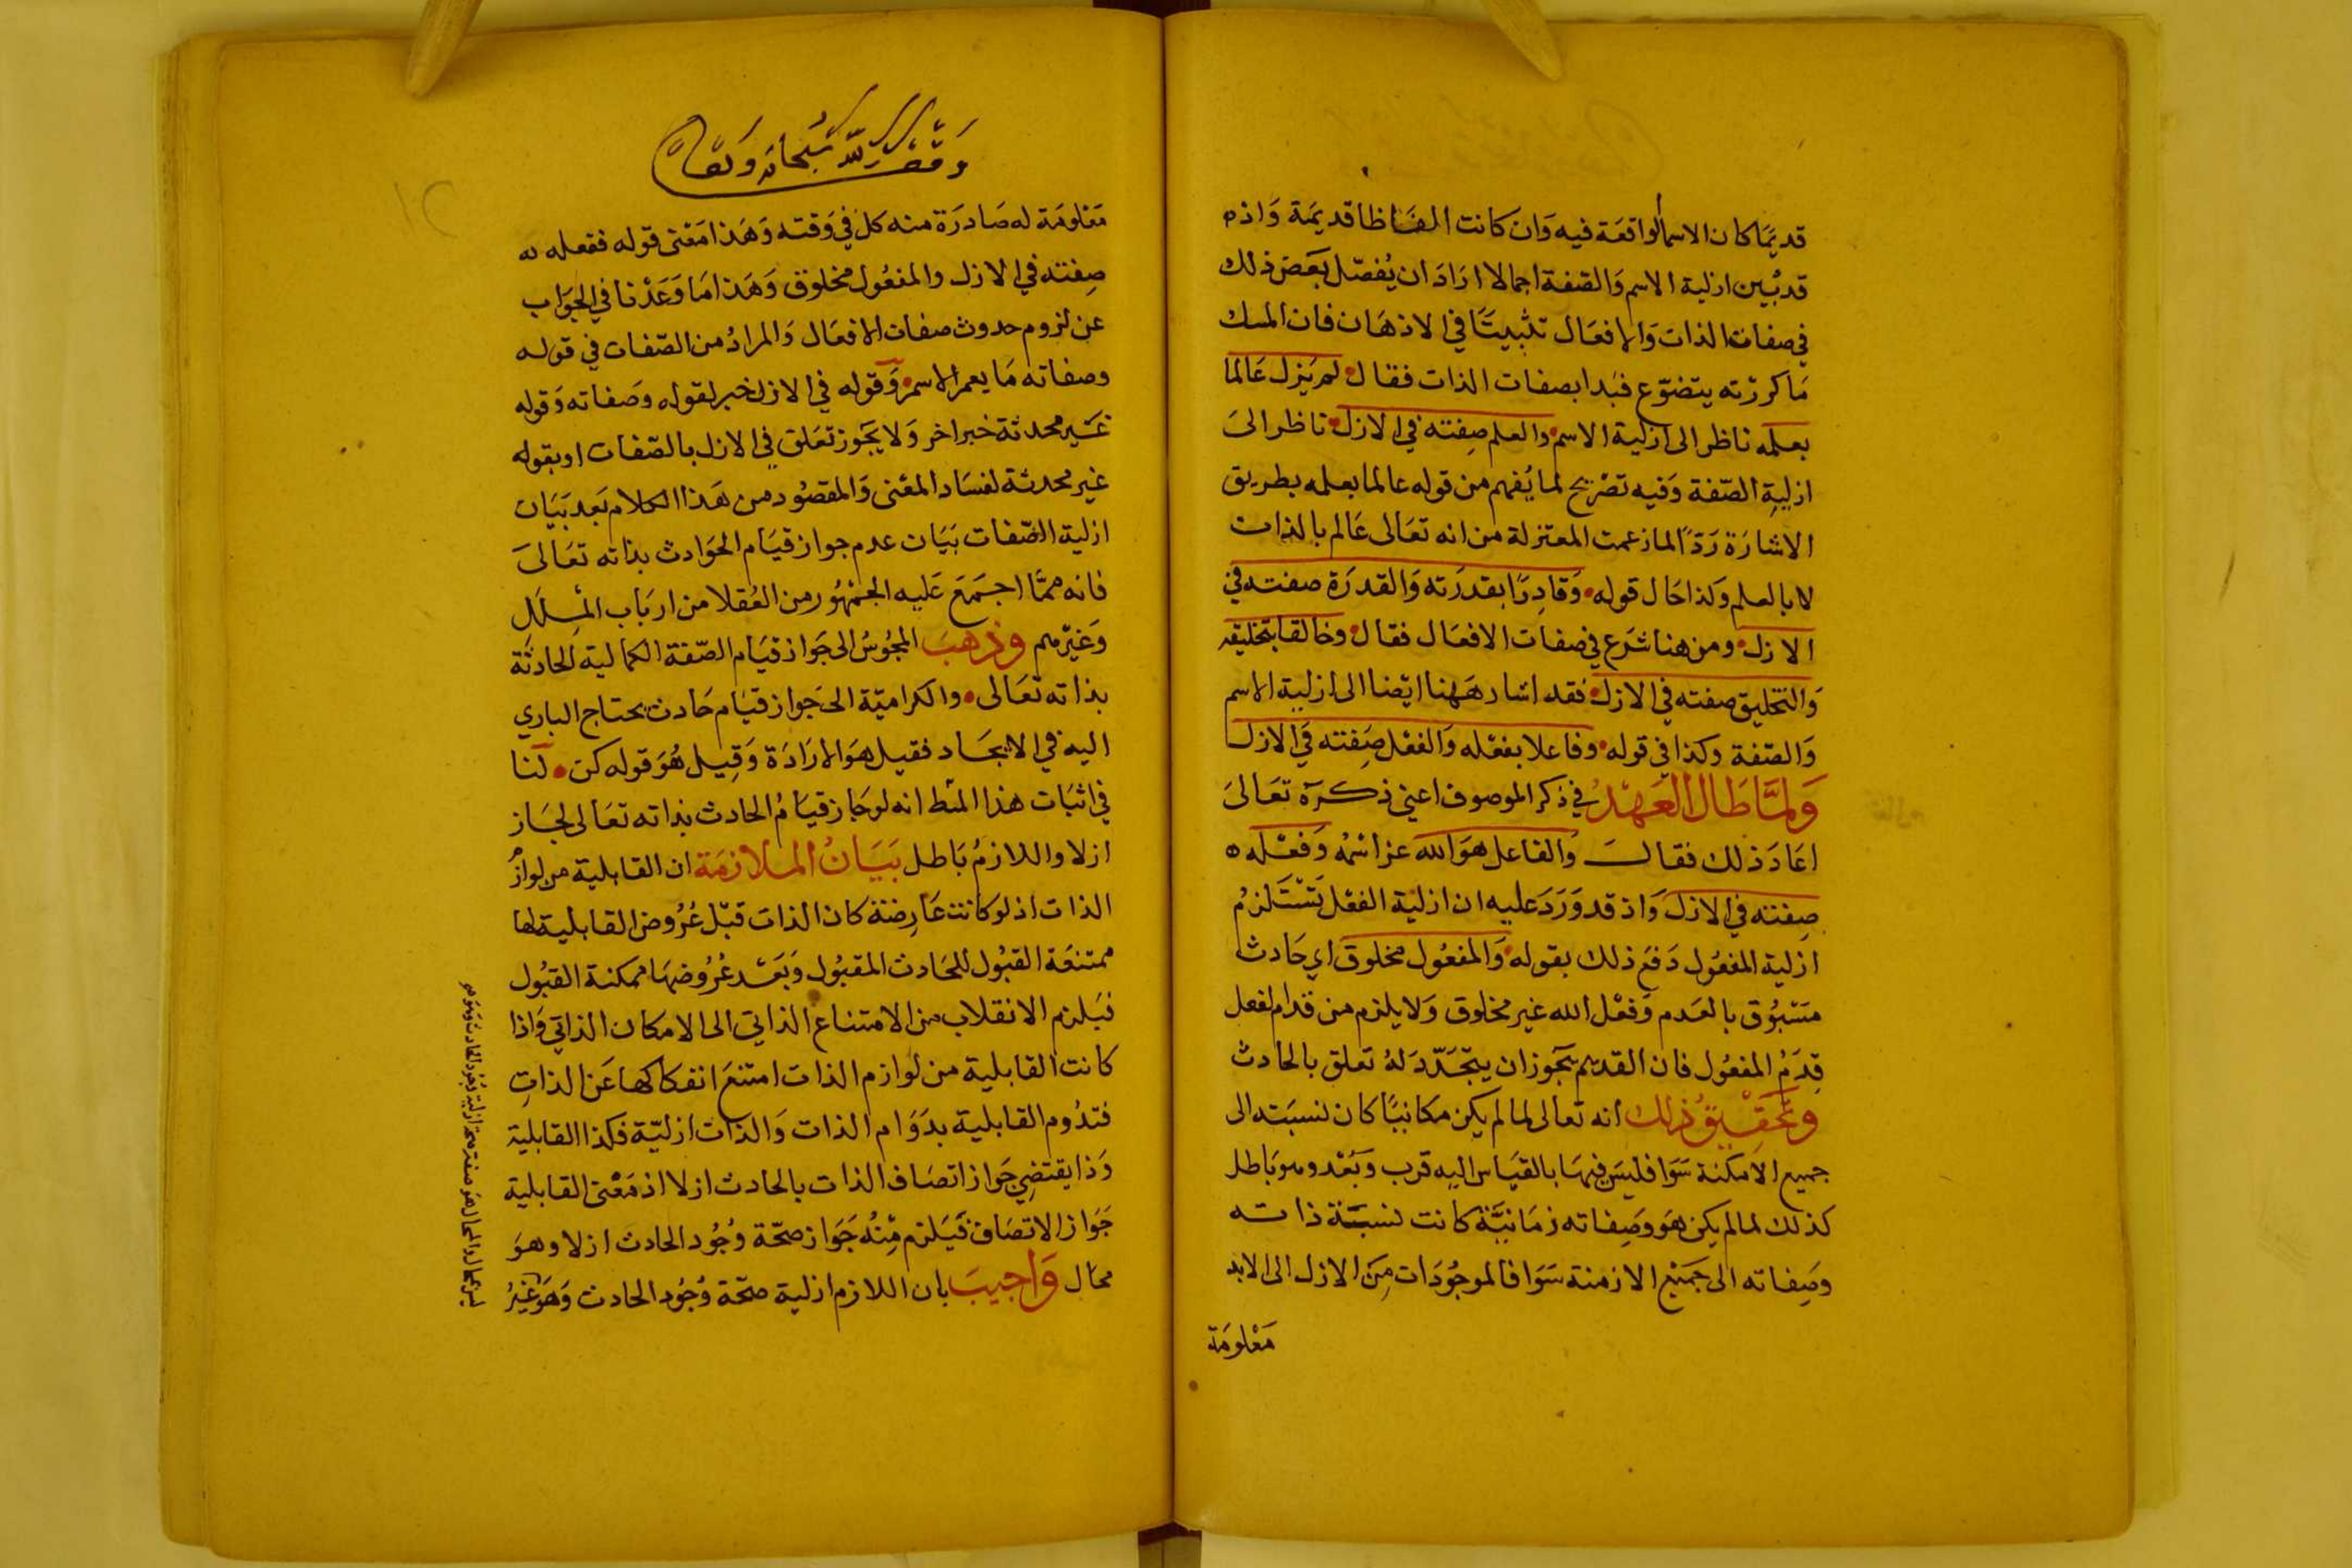 قديمًا كان الاسما الواقعة فيه وان كانت الفاظا قديمة واذ
قد بُيين ازلية الاسم والصفة اجمالا اراد ان يُفصّل بعض ذلك
في صفات الذات والافعال تثبيتًا في الاذهان فان المسك
ما كررته يتضوّع فبدا بصفات الذات فقال لم يزل عالما
بعلمه ناظر الى ازلية الاسم والعلم صفته في الازل ناظر الى
ازلية الصّفة وفيه تصريح لما يُفهم من قوله عالما بعلمه بطريق
الاشارة ردّا لما زعمت المعتزلة من انه تعالى عالم بالذات
لا بالعلم وكذا حال قوله وقادرًا بقدرته والقدرة صفته في
الازل ومن هنا شرع في صفات الافعال فقال وخالقا بتخليقه
والتخليق صفته في الازل فقد اشار ههنا ايضا الى ازلية الاسم
والصّفة وكذا في قوله وفاعلا بفعله والفعل صفته في الازل
ولمّا طال العهدُ في ذكر الموصوف اعني ذكره تعالى
اعاد ذلك فقال والفاعل هو الله عز اسمُه وفعله
صفته في الازل واذ قد ورد عليه ان ازلية الفعل تستلزمُ
ازلية المفعول دفع ذلك بقوله والمفعُول مخلوق اي حادث
مسبُوق بالعدم وفعل الله غير مخلوق ولا يلزم من قدم الفعل
قِدمُ المفعُول فان القديم يجوز ان يتجدّد لهُ تعلق بالحادث
وتحقيقُ ذلك انه تعالى لما لم يكن مكانيًا كان نسبته الى
جميع الامكنة سوا فليس فيها بالقياس اليه قرب وبُعد وهو باطل
كذلك لما لم يكن هو وصفاته زمانيّة كانت نسبة ذاته
وصِفاته الى جميع الازمنة سوا فالموجُودات من الازل الى الابد
معلومة
وقف لله سبحانه وتعالى
معلومة له صادرة منه كل في وقته وهذا معنى قوله ففعله
صِفته في الازل والمفعُول مخلوق وهذا ما وعدنا في الجواب
عن لزوم حدوث صفات الافعال والمرادُ من الصّفات في قوله
وصفاته ما يعم الاسم وقوله في الازل خبر لقوله وصفاته وقوله
غير محدثة خبر اخر ولا يجوز تعلق في الازل بالصّفات او بقوله
غير محدثة لفساد المعنى والمقصُود من هذا الكلام بعد بيان
ازلية الصّفات بيان عدم جواز قيام الحوادث بذاته تعالى
فانه ممّا اجمع عليه الجمهُور من العُقلا من ارباب المِلل
وغيرهم وذهب المجُوسُ الى جواز قيام الصّفة الكمالية الحادثة
بذاته تعالى والكراميّة الى جواز قيام حادث يحتاج الباري
اليه في الايجاد فقيل هو الارادة وقِيل هُو قوله كن لنا
في اثبات هذا المط انه لو جاز قيامُ الحادث بذاته تعالى لجاز
ازلا واللازمُ باطل بيانُ الملازمة ان القابلية من لوازم
الذات اذ لو كانت عارضة كان الذات قبل عُرُوض القابلية لها
ممتنعة القبُول للحادث المقبُول وبعد عُرُوضها ممكنة القبُول
فيلزم الانقلاب من الامتناع الذاتي الى الامكان الذاتي واذا
كانت القابلية من لوازم الذات امتنع انفكاكها عن الذاتِ
فتدُوم القابلية بدوام الذات والذات ازليّة فكذا القابلية
وذا يقتضي جواز اتصاف الذات بالحادث ازلا اذ معنى القابلية
جواز الاتصاف فيلزم مِنهُ جواز صحّة وُجُود الحادث ازلا وهو
محال واجيب بان اللازم ازلية صحّة وُجُود الحادث وهو غيرُ